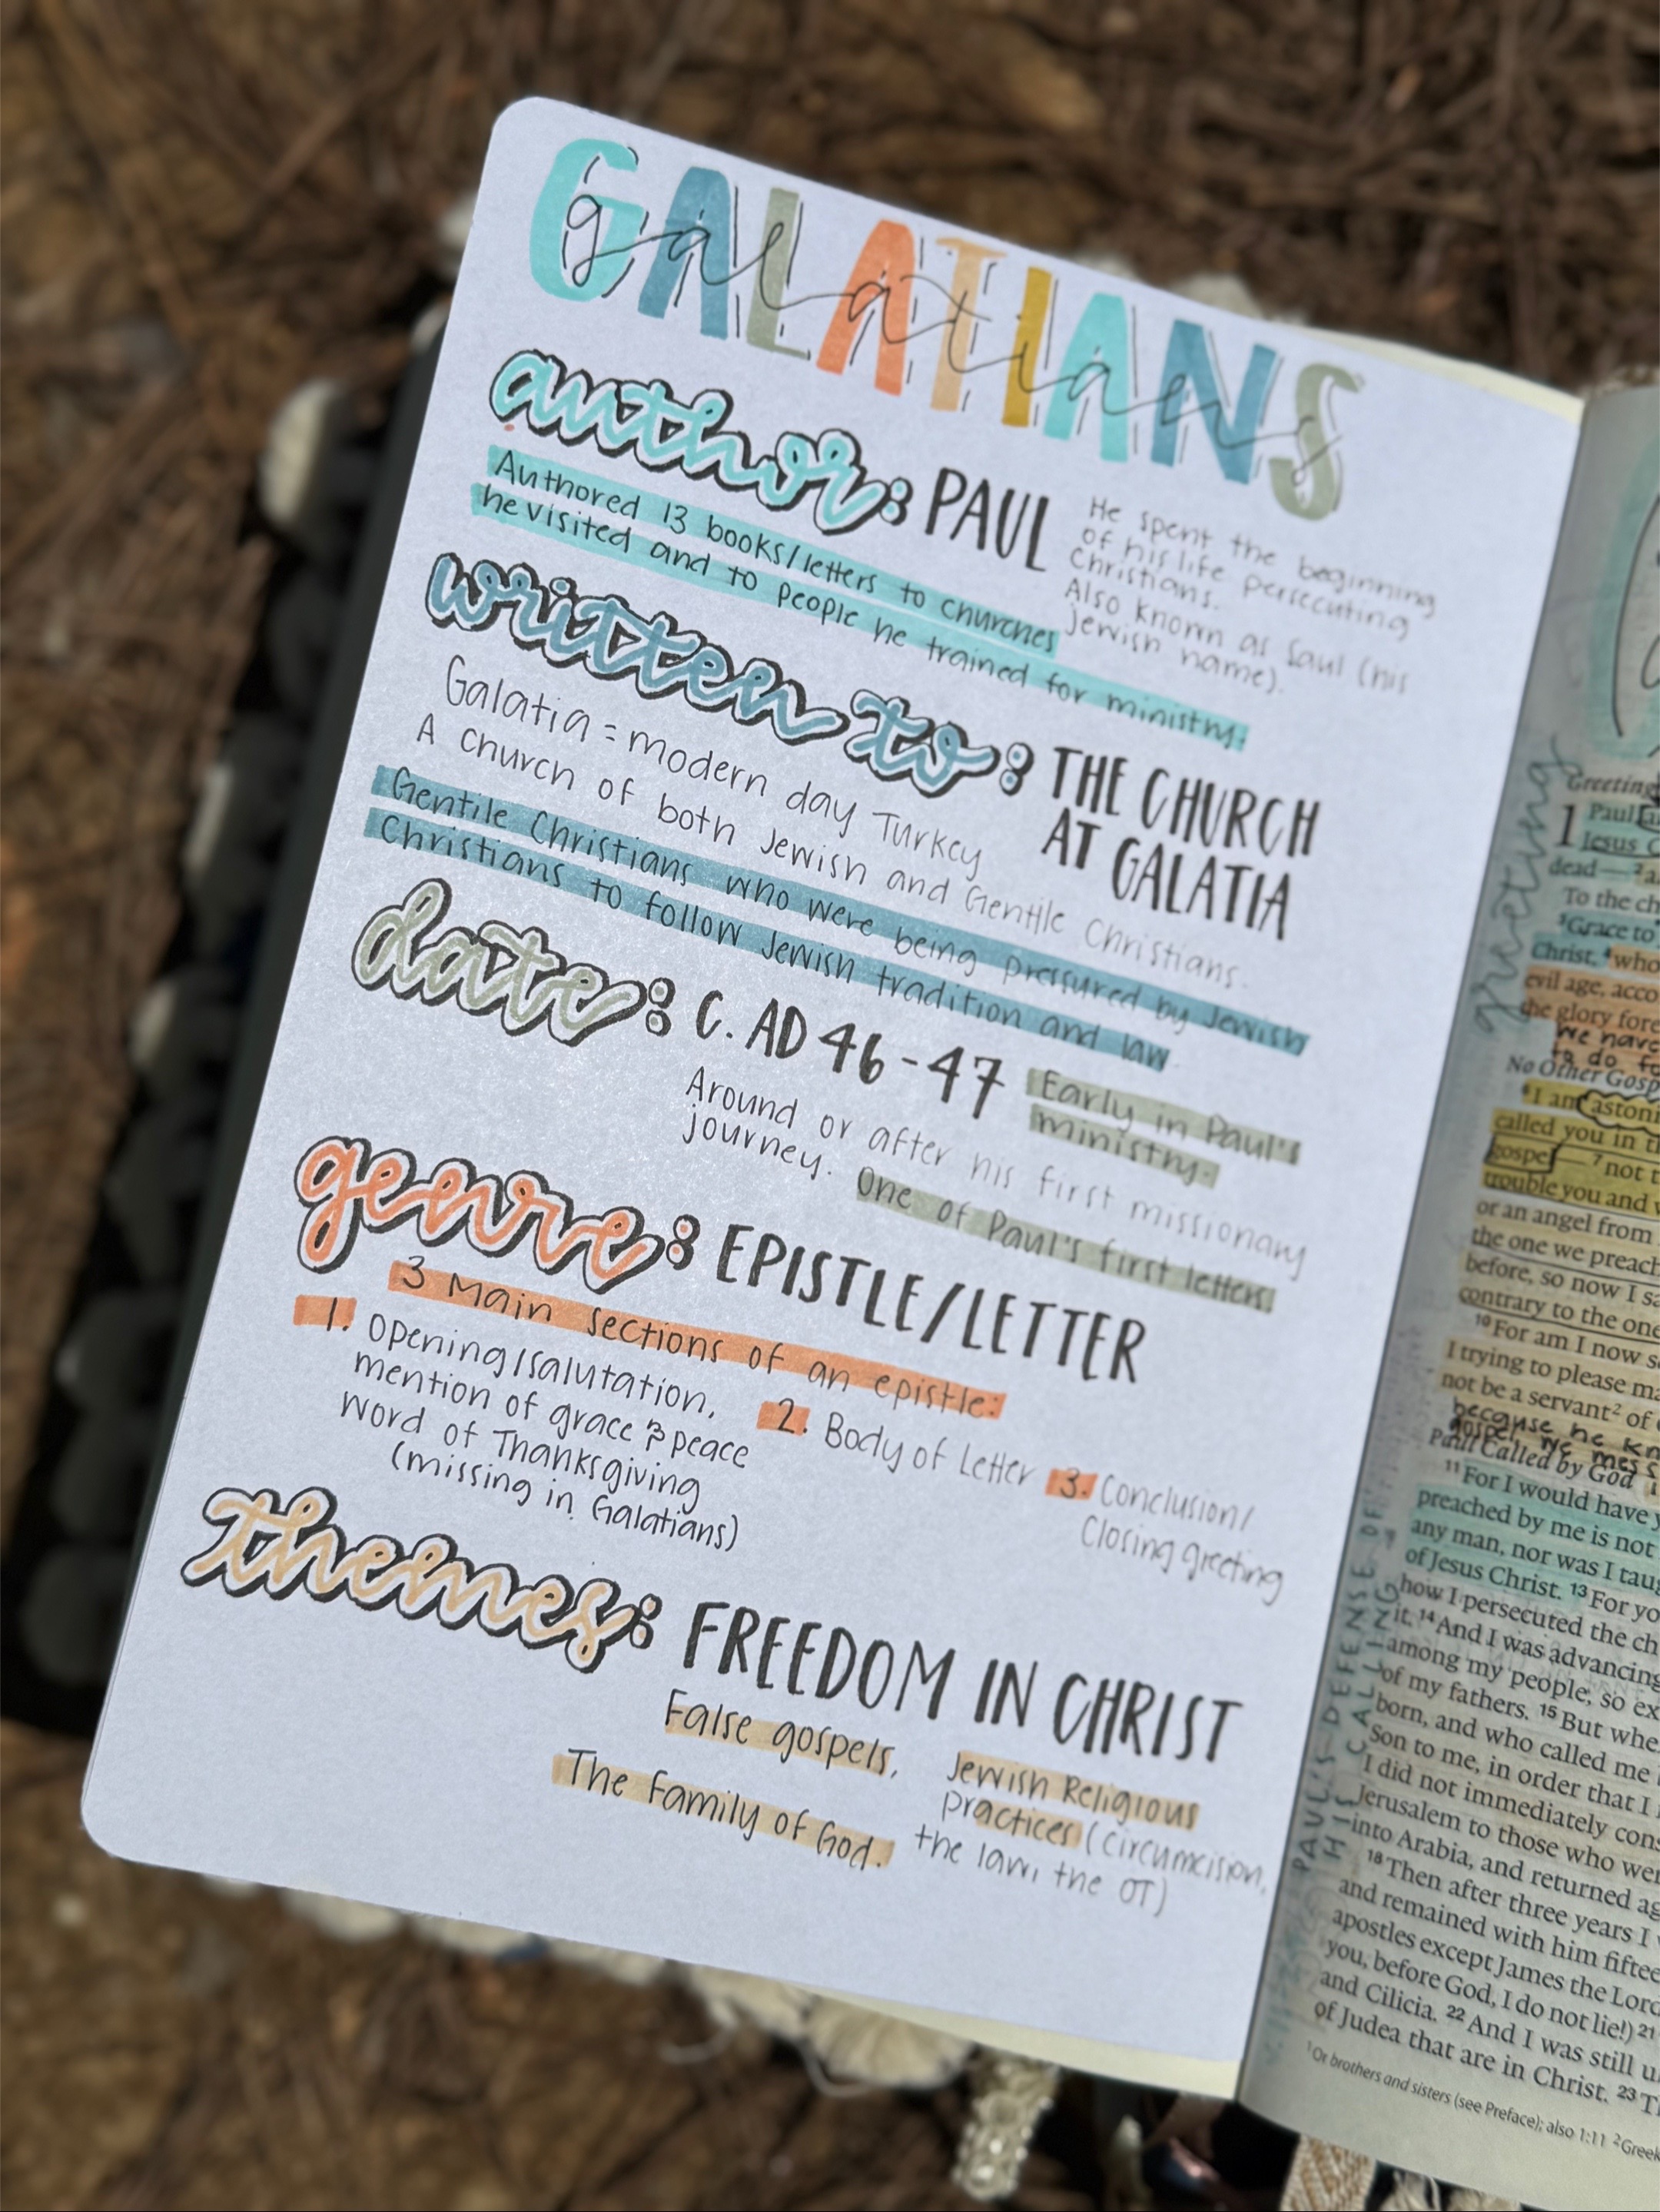 GALATIANS
galatians
author: PAUL
He spent the beginning
of his life persecuting
Christians.
Also known as Saul (his
Jewish name).
Authored 13 books/letters to churches
he visited and to people he trained for ministry.
written to: THE CHURCH
AT GALATIA
Galatia = modern day Turkey
A church of both Jewish and Gentile Christians.
Gentile Christians who were being pressured by Jewish
Christians to follow Jewish tradition and law.
date: C. AD 46-47
Early in Paul's
ministry.
Around or after his first missionary
journey. One of Paul's first letters.
genre: EPISTLE/LETTER
3 Main sections of an epistle:
1. Opening/salutation,
mention of grace & peace
word of Thanksgiving
(missing in Galatians)
2. Body of Letter
3. Conclusion/
Closing greeting
themes: FREEDOM IN CHRIST
False gospels,
Jewish Religious
practices (circumcision,
the law, the OT)
The Family of God.
greeting
Greeting
1 Paul, a
Jesus C
dead—2 a
To the ch
3 Grace to
Christ, 4 who
evil age, acco
the glory fore
we have
to do fo
No Other Gosp
6 I am astoni
called you in th
gospel—7 not t
trouble you and w
or an angel from
the one we preach
before, so now I sa
contrary to the one
10 For am I now s
I trying to please ma
not be a servant2 of
because he kn
gospel mess
Paul Called by God
11 For I would have y
preached by me is not
any man, nor was I taug
of Jesus Christ. 13 For yo
how I persecuted the ch
it. 14 And I was advancing
among my people, so ex
of my fathers. 15 But whe
born, and who called me
Son to me, in order that I
I did not immediately cons
Jerusalem to those who wer
into Arabia, and returned ag
18 Then after three years I
and remained with him fiftee
apostles except James the Lord
you, before God, I do not lie!) 21
and Cilicia. 22 And I was still u
of Judea that are in Christ. 23 T
PAUL'S DEFENSE OF
HIS CALLING
1 Or brothers and sisters (see Preface); also 1:11 2 Greek